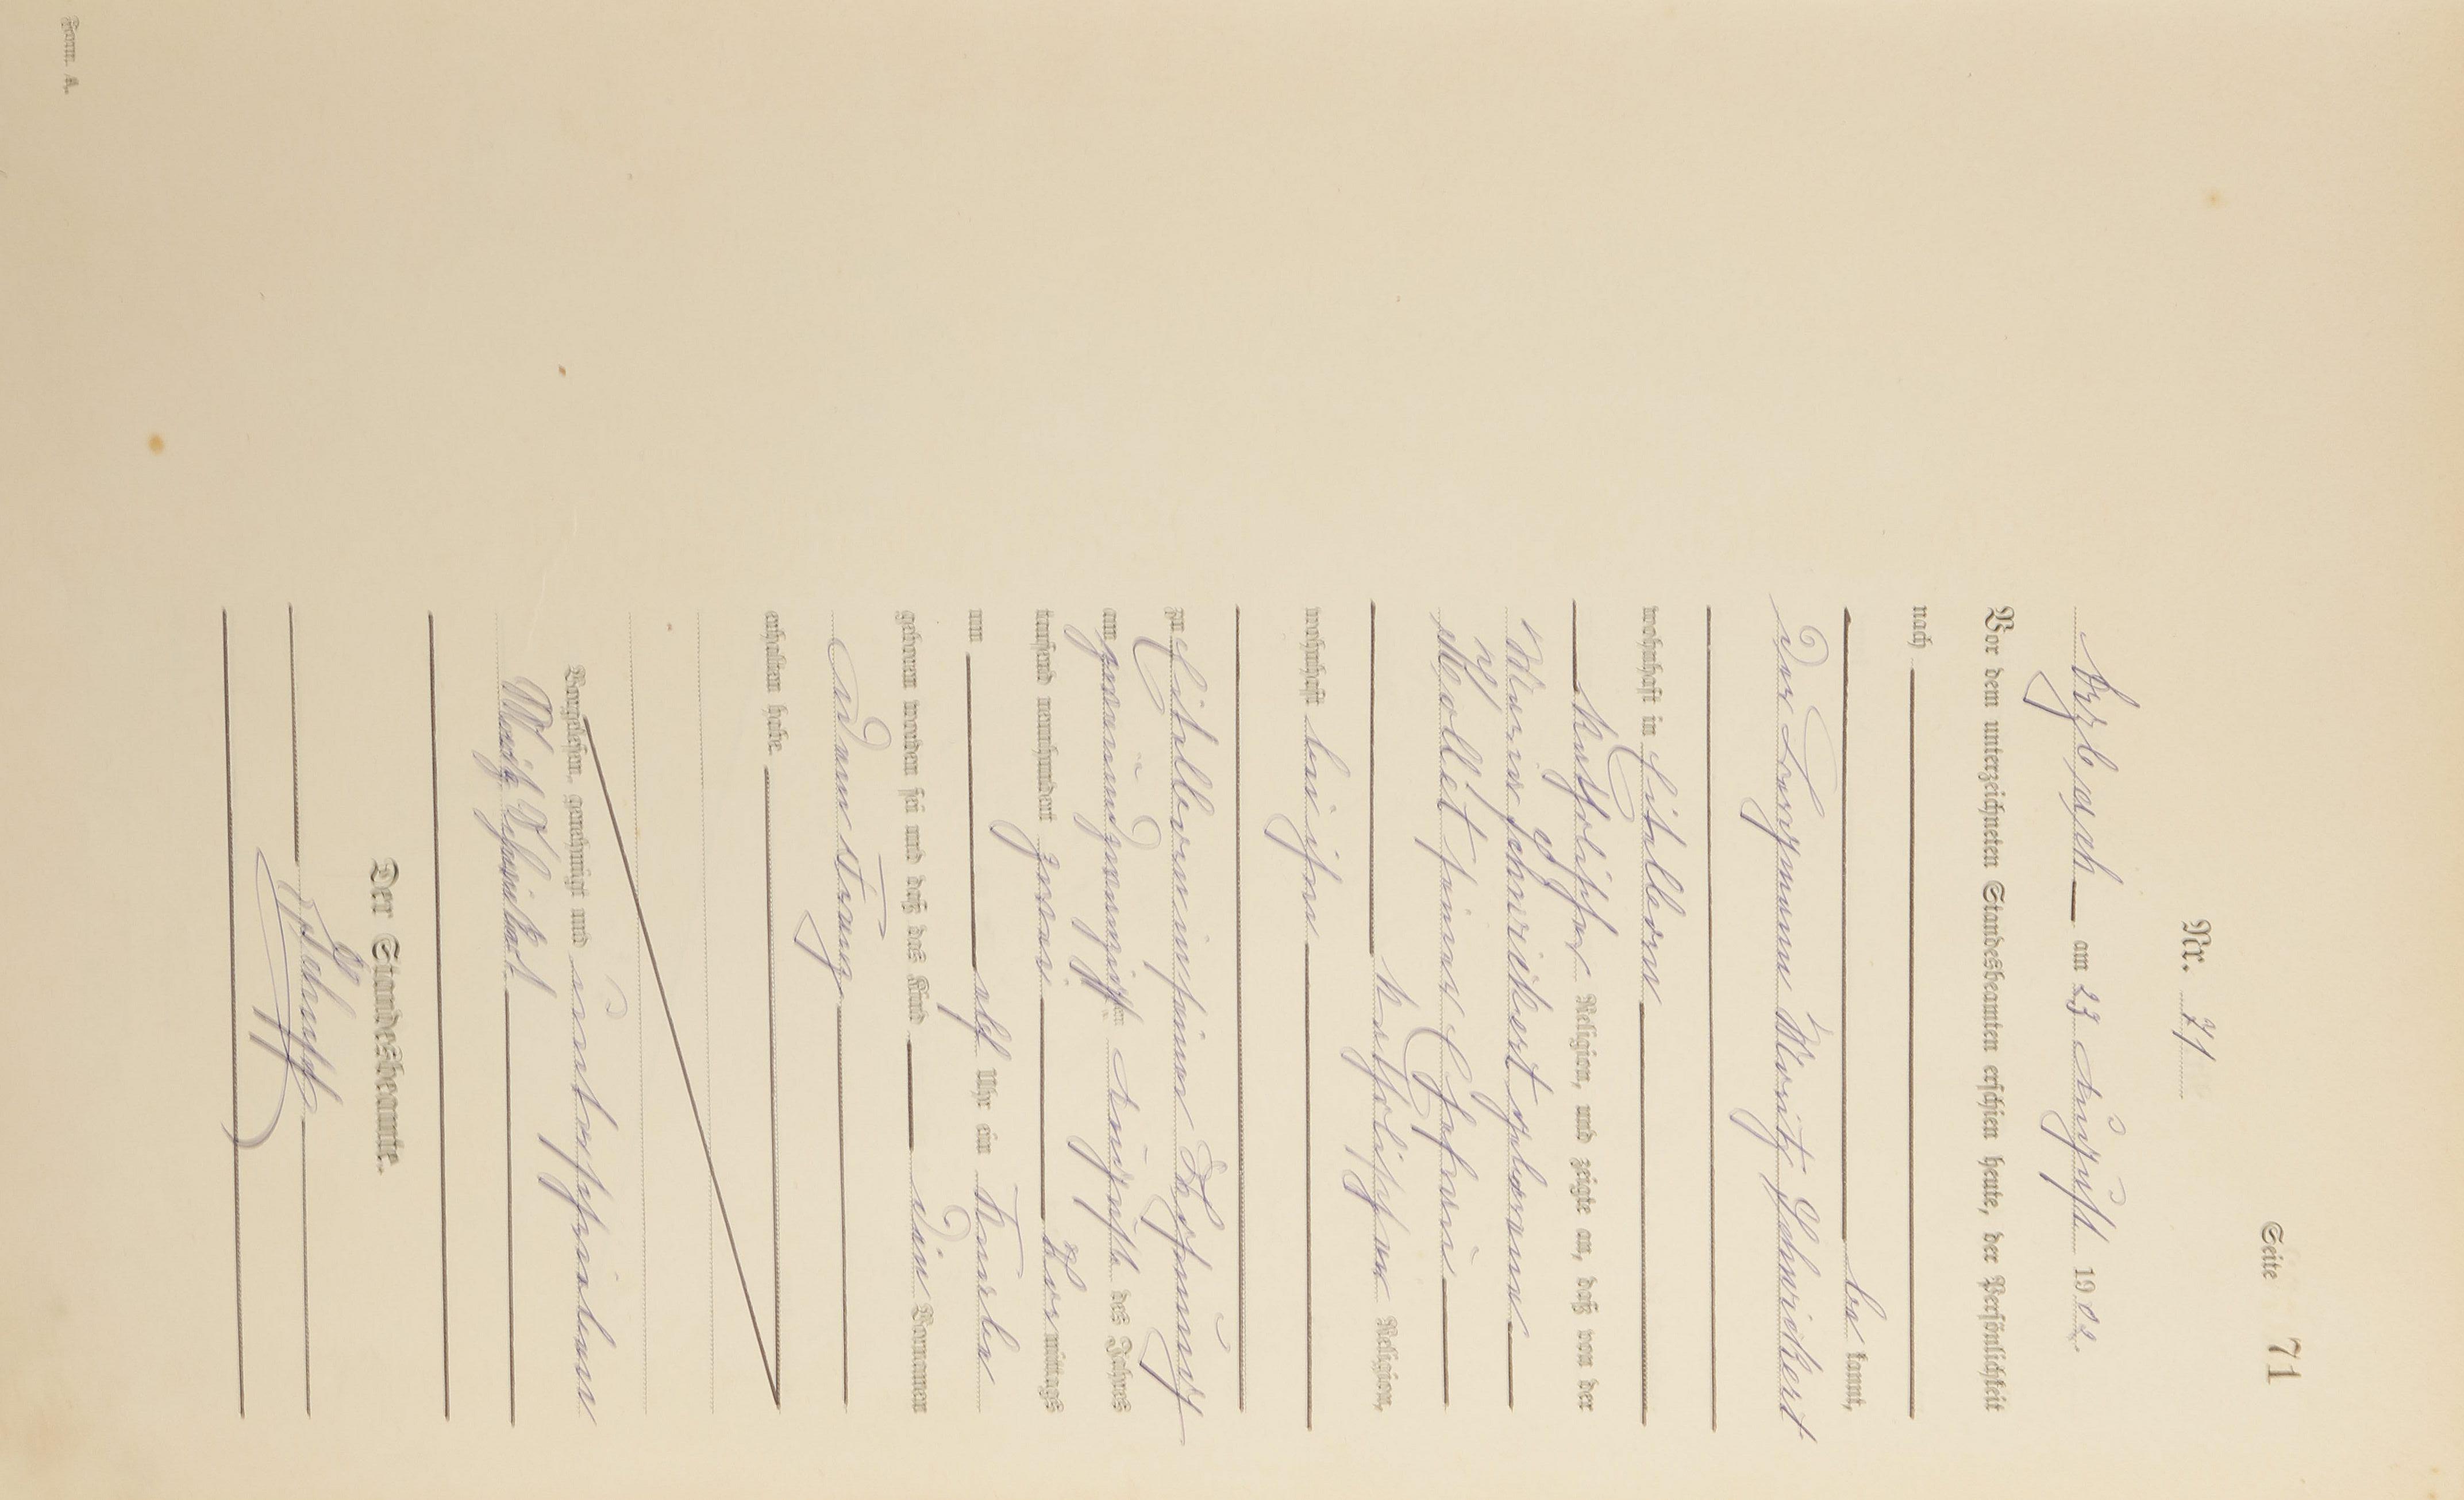 Seite 71
Nr. 71
Arzbach am 23 August 1902.
Vor dem unterzeichneten Standesbeamten erschien heute, der Persönlichkeit
nach
be kannt,
der Bergmann Moritz Schwickert
wohnhaft in Eitelborn
katholischer Religion, und zeigte an, daß von der
Maria Schwickert geborenen
Mollet seiner Ehefrau
katholischer Religion,
wohnhaft bei ihm
zu Eitelborn in seiner Wohnung
am zweiundzwanzigsten August des Jahres
tausend neunhundert zwei Vor mittags
um elf Uhr ein Knabe
geboren worden sei und daß das Kind den Vornamen
erhalten habe.
Vorgelesen, genehmigt und unterschrieben
Moritz Schwickert
Der Standesbeamte.
Form. A.